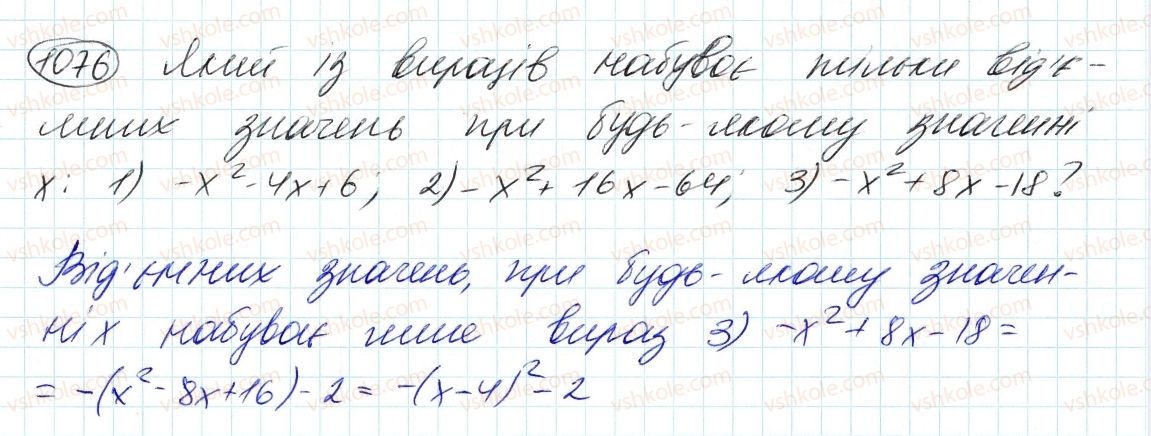 1076 Який із виразів набуває тільки від'є-
мних значень при будь-якому значенні
x: 1) -x²-4x+6; 2) -x²+16x-64; 3) -x²+8x-18?
Від'ємних значень, при будь-якому значен-
ні x набуває лише вираз 3) -x²+8x-18=
= -(x²-8x+16)-2 = -(x-4)²-2